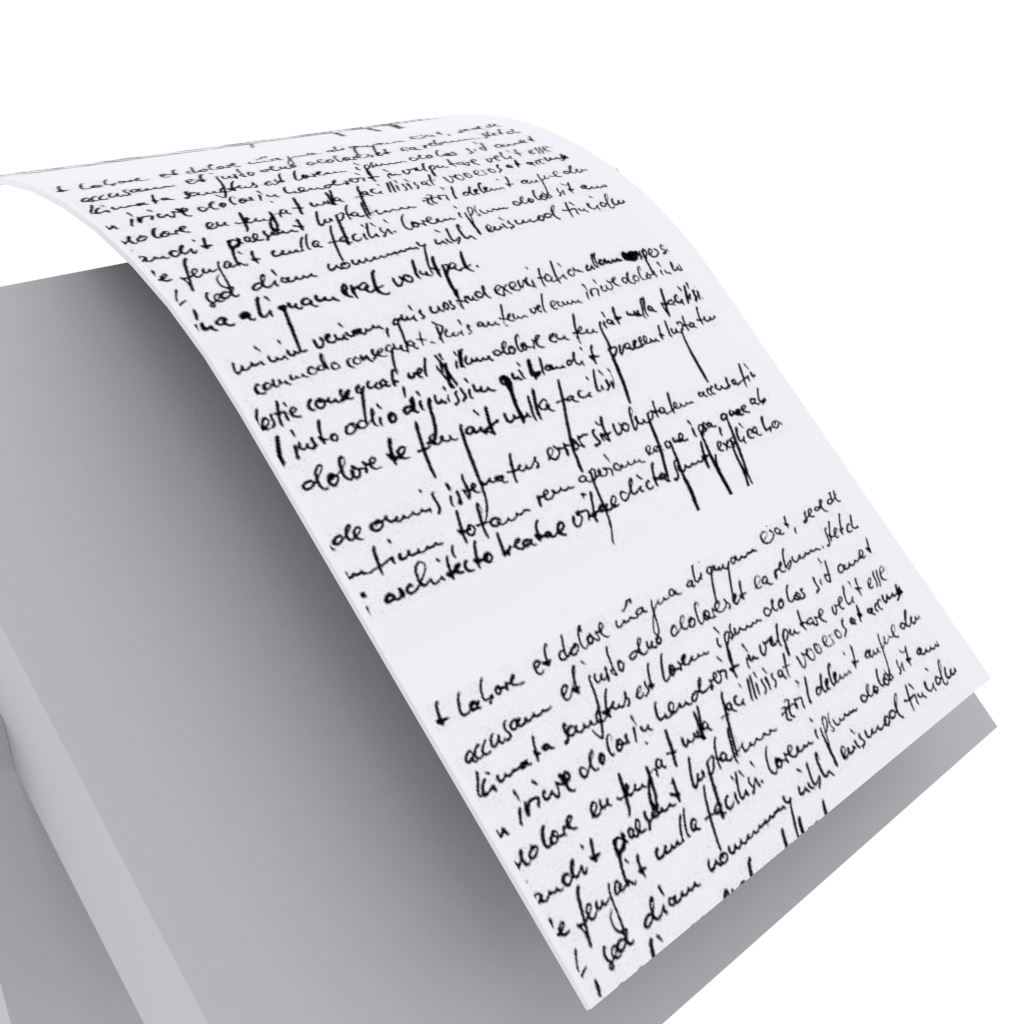 Labore et dolore magna aliquyam erat, sed de
accusam et justo duo dolores et ea rebum. Stetd
kimata sanctus est Lorem ipsum dolos sid amet
iriure dolor in hendrerit in vulputate velit esse
dolore eu feugiat nulla facillisis at vooeros at accums
andit praesent luptatum zzril delenit augue du
e feugait nulla facilisi. Lorem ipsum dolod sit am
sed diam nonummy nibh euismod tincidu
na aliquam erat volutpat.
minim veniam, quis nostrud exercitation ullam
commodo consequat. Duis autem vel eum iriure dolor in
estie consequat, vel illum dolore eu feugiat nulla facilisi
justo odio dignissim qui blandit praesent luptatu
dolore te feugait nulla facilisi
de omnis iste natus error sit voluptatem accusati
ntium, totam rem aperiam eaque ipsa, quae ab
architecto beatae vitae dicta sunt, explicabo
Labore et dolore magna aliquyam erat, sed de
accusam et justo duo dolores et ea rebum. Stetd
kimata sanctus est Lorem ipsum dolos sid amet
iriure dolor in hendrerit in vulputate velit esse
dolore eu feugiat nulla facillisis at vooeros at accums
andit praesent luptatum zzril delenit augue du
e feugait nulla facilisi. Lorem ipsum dolod sit am
sed diam nonummy nibh euismod tincidu